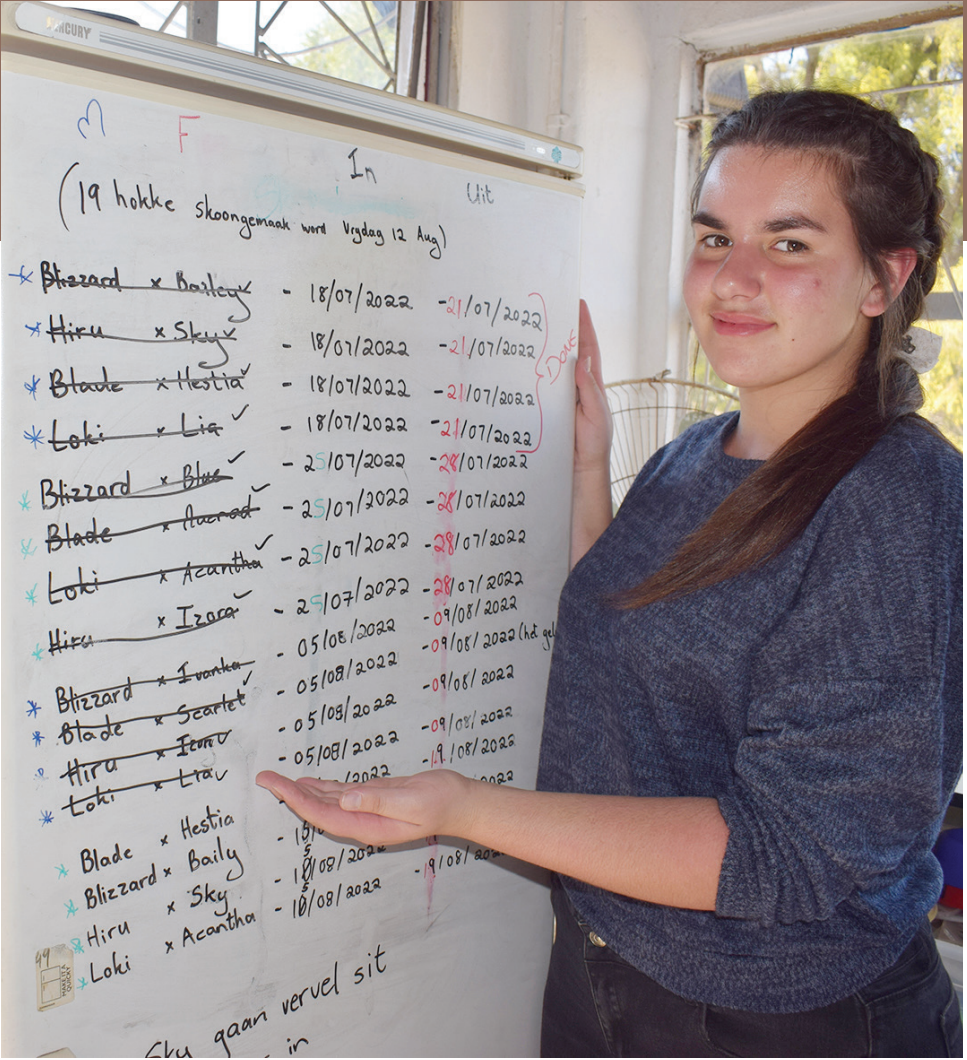 MERCURY
M F In Uit
(19 hokke skoongemaak word Vrydag 12 Aug)
* Blizzard x Bailey ✓ - 18/07/2022 - 21/07/2022
* Hiru x Sky ✓ - 18/07/2022 - 21/07/2022
* Blade x Hestia ✓ - 18/07/2022 - 21/07/2022
* Loki x Lia ✓ - 18/07/2022 - 21/07/2022
Done
* Blizzard x Blue ✓ - 25/07/2022 - 28/07/2022
* Blade x ✓ - 25/07/2022 - 28/07/2022
* Loki x Acantha ✓ - 25/07/2022 - 28/07/2022
* Hiru x Izara ✓ - 25/07/2022 - 28/07/2022
* Blizzard x Ivanka - 05/08/2022 - 09/08/2022
* Blade x Scarlet ✓ - 05/08/2022 - 09/08/2022 (het gel
* Hiru x ✓ - 05/08/2022 - 09/08/2022
* Loki x Lia ✓ - 05/08/2022 - 09/08/2022
* Blade x Hestia /2022 - 19/08/2022
* Blizzard x Baily - 15/ 2022
* Hiru x Sky - 15/08/2022 - 19/08/202
* Loki x Acantha - 15/08/2022
MAKE IT A QUICKY
Sky gaan vervel sit
in